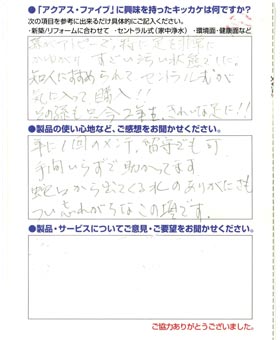 ●「アクアス・ファイブ」に興味を持ったキッカケは何ですか?
次の項目を参考に出来るだけ具体的にご記入ください。
・新築/リフォームに合わせて ・セントラル式(家中浄水) ・環境面・健康面など
すごい汚い状態でした。
知人に勧められてセントラル式が
気に入って購入!!
●製品の使い心地など、ご感想をお聞かせください。
年に1回のメンテ、留守でも可
手間いらずで助かってます
蛇口から出てくる水のありがたさも
つい忘れがちなこの頃です。
●製品・サービスについてご意見・ご要望をお聞かせください。
ご協力ありがとうございました。